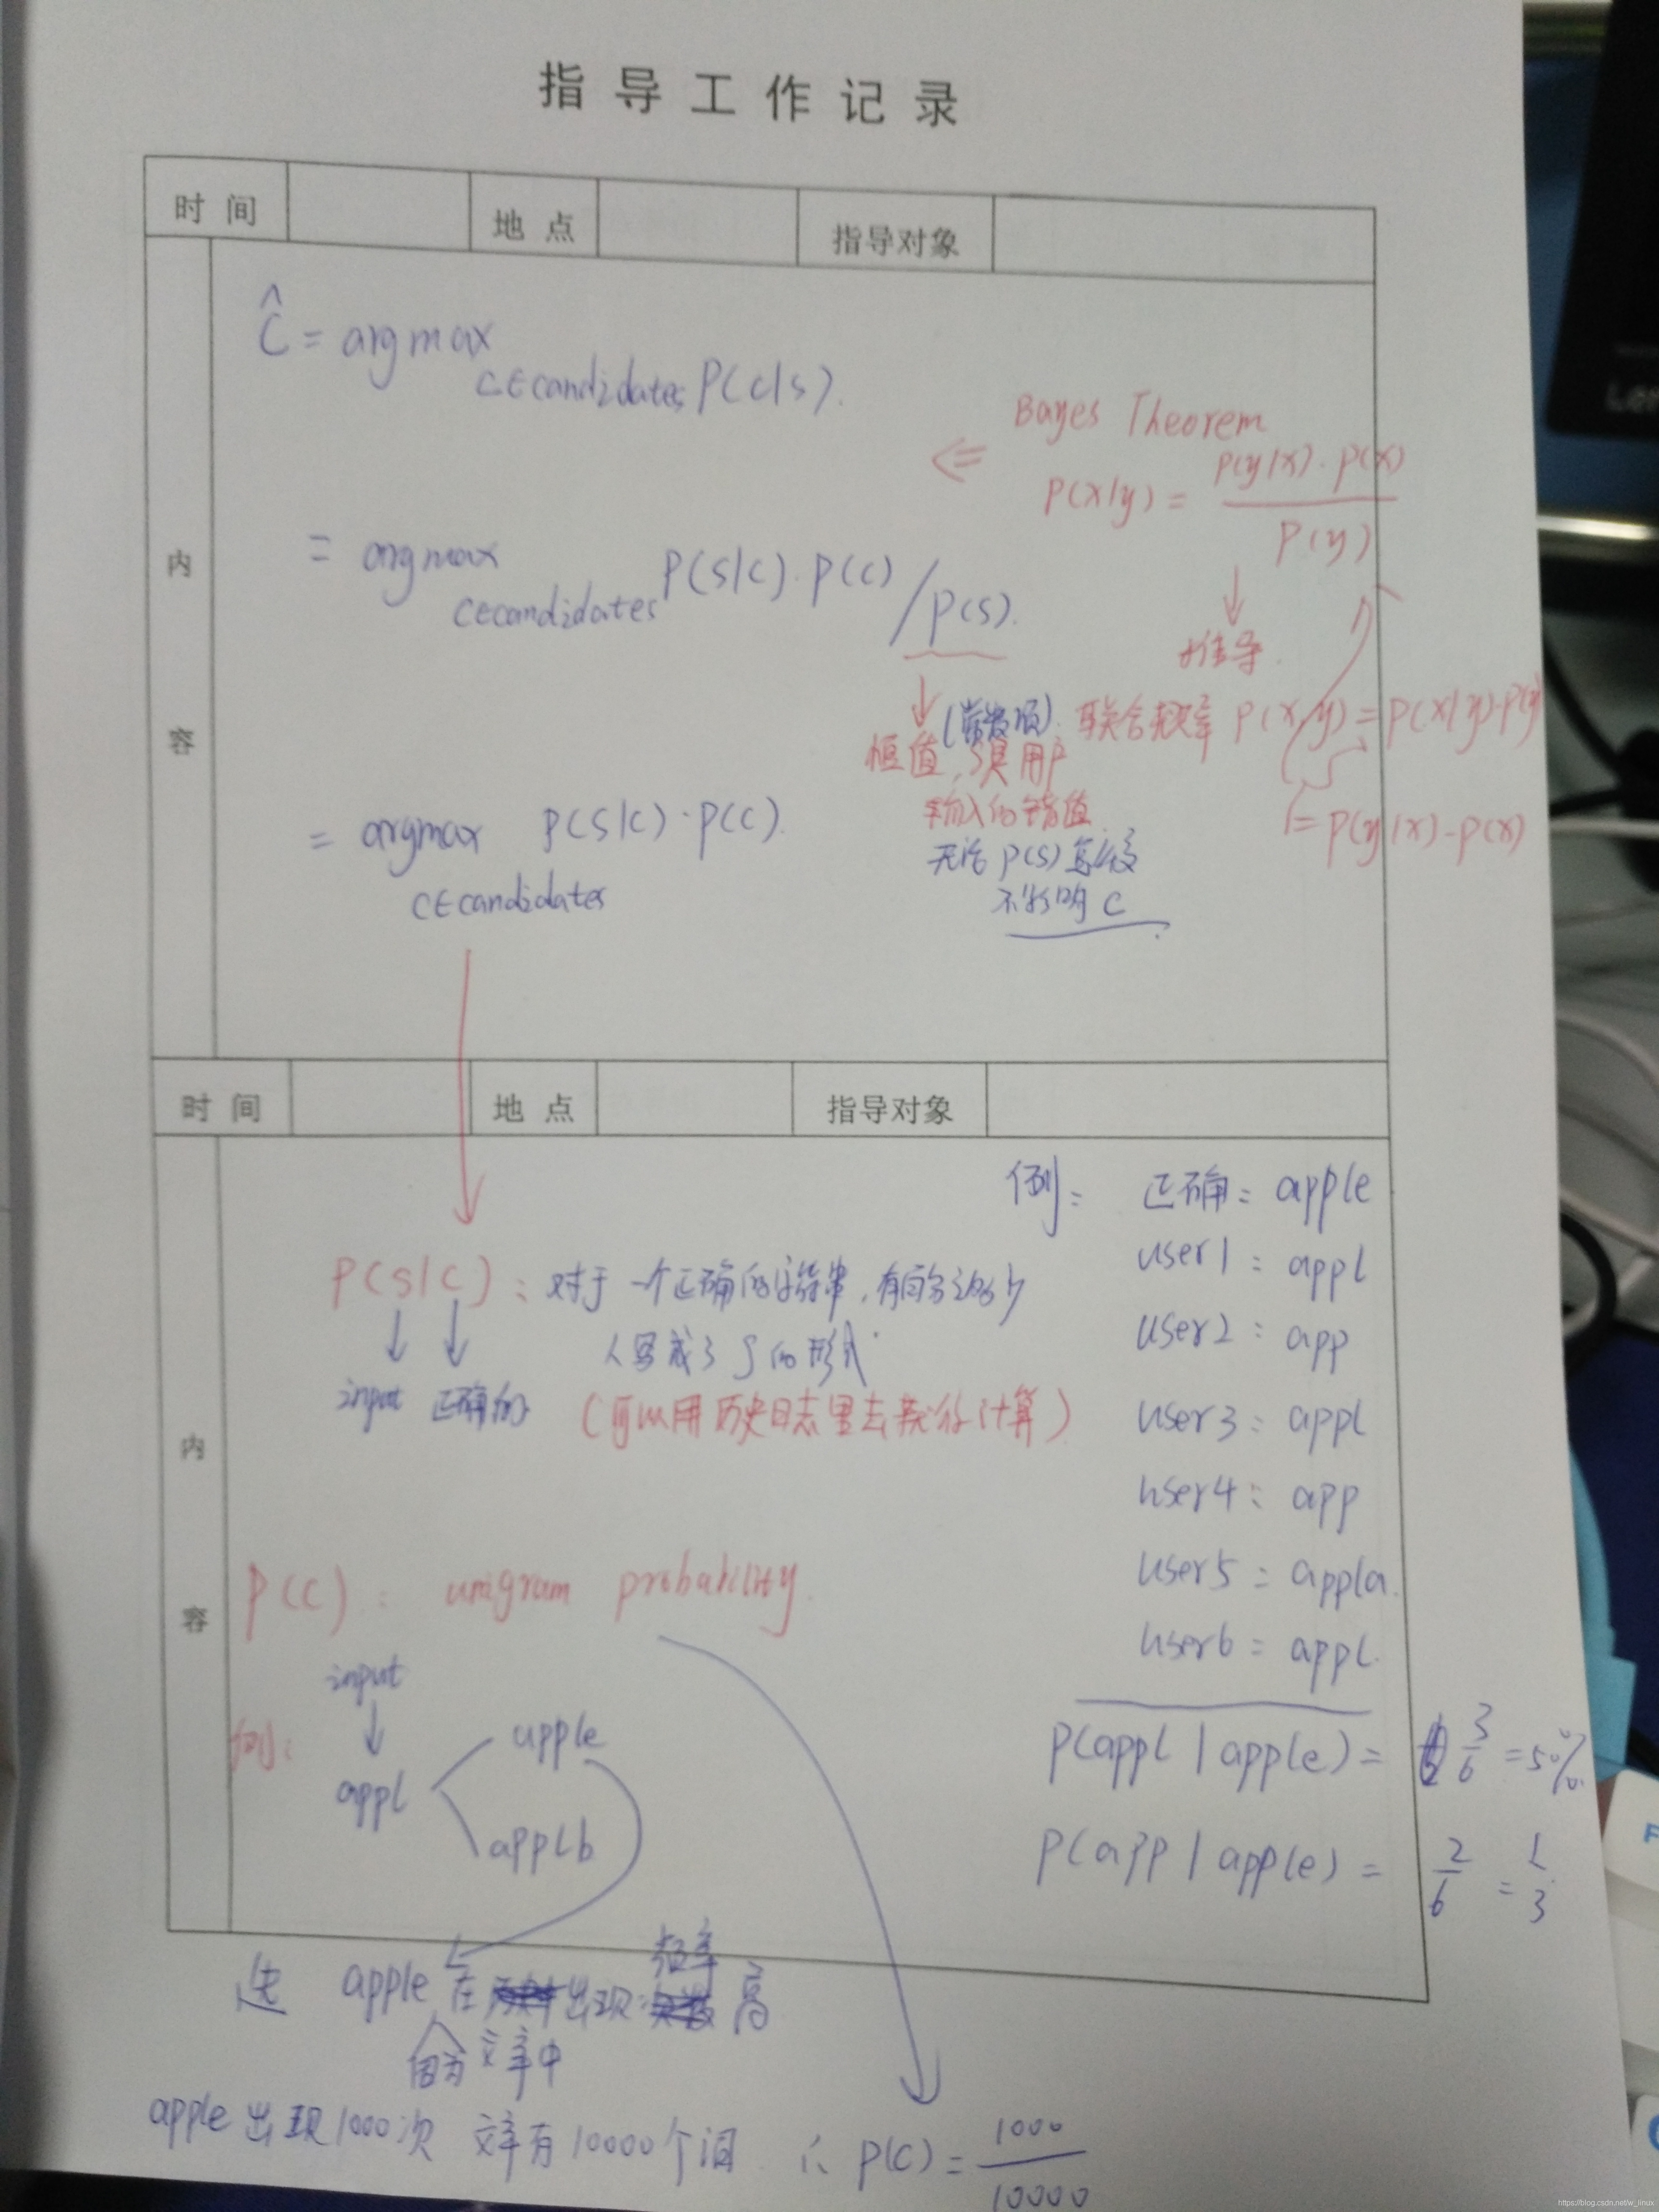 指导工作记录
时间 地点 指导对象
内容
Ĉ = argmax
c∈candidates P(c|s).
Bayes Theorem
⇐ P(x|y) = P(y|x)·P(x) / P(y)
= argmax
c∈candidates P(s|c)·P(c) / P(s).
↓ 推导.
↓ (常数项). 联合概率 P(x,y) = P(x|y)·P(y)
恒值, S是用户
输入的错值
= P(y|x)·P(x)
= argmax P(s|c)·P(c).
c∈candidates
无论 P(s) 怎么变
不影响 C
时间 地点 指导对象
内容
P(s|c): 对于一个正确的字符串,有百分之多少
人写成了 S 的形式.
↓ ↓
input 正确的
(可以用历史日志里去计算)
例: 正确: apple
user1: appl
user2: app
user3: appl
user4: app
user5: appla.
user6: appl.
P(appl | apple) = 3/6 = 50%.
P(app | apple) = 2/6 = 1/3
P(c): unigram probability.
input
↓
例: appl
apple
applb
选 apple 在出现概率高
因为 文章中
apple 出现1000次 文章有10000个词 ∴ P(C) = 1000/10000
https://blog.csdn.net/w_linux